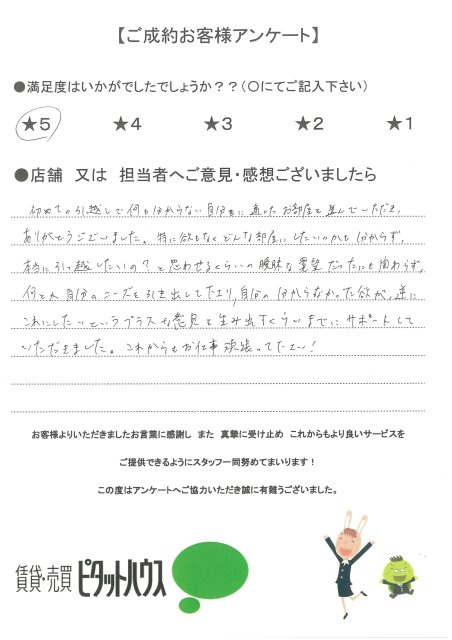 【ご成約お客様アンケート】
●満足度はいかがでしたでしょうか？？(〇にてご記入下さい)
★5 ★4 ★3 ★2 ★1
●店舗 又は 担当者へご意見・感想ございましたら
初めての引越しで何も分からない自分に適したお部屋を選んでいただき、
ありがとうございました。特に欲もなくどんな部屋にしたいのかも分からず、
本当に引っ越したいの？と思わせるくらいの曖昧な要望だったにも関わらず、
何とか自分のニーズを引き出して下さり、自分の分からなかった欲が、逆に
これにしたいというプラスな意見を生み出すくらいまでにサポートして
いただきました。これからもお仕事頑張って下さい！
お客様よりいただきましたお言葉に感謝し また 真摯に受け止め これからもより良いサービスを
ご提供できるようにスタッフ一同努めてまいります！
この度はアンケートへご協力いただき誠に有難うございました。
賃貸・売買 ピタットハウス